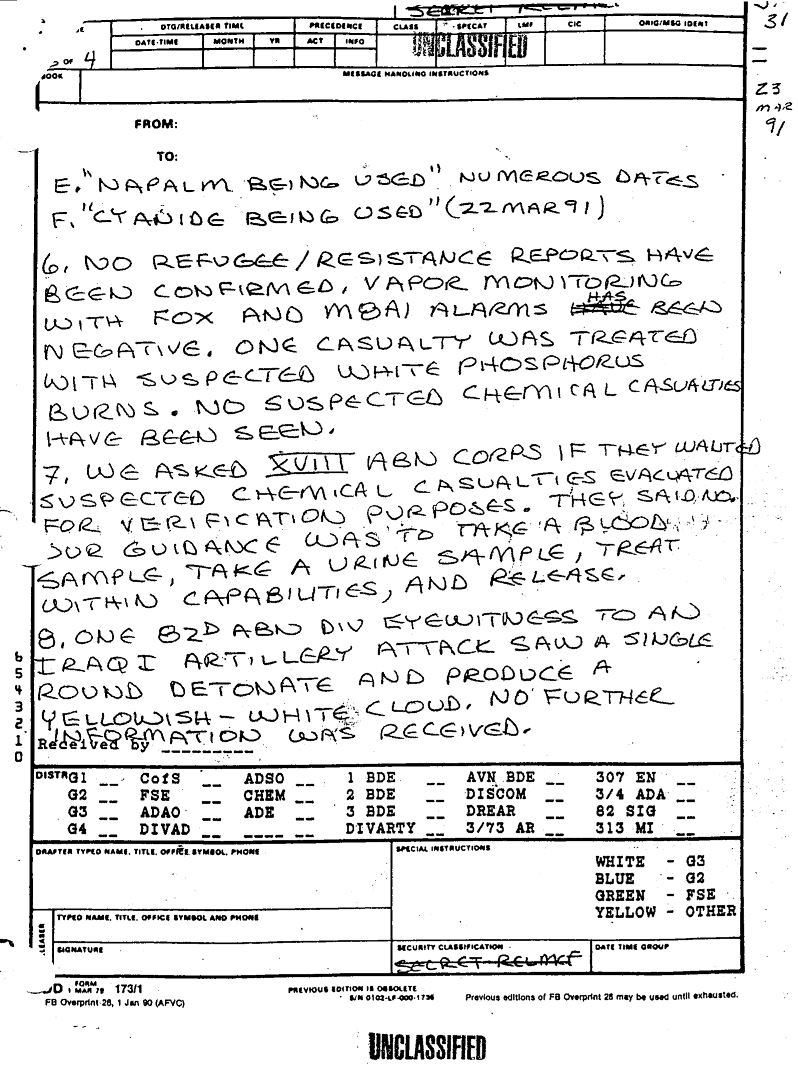 SECRET
31
DTG/RELEASER TIME PRECEDENCE CLASS SPECAT LMF CIC ORIG/MSG IDENT
DATE-TIME MONTH YR ACT INFO UNCLASSIFIED
OF 4
BOOK MESSAGE HANDLING INSTRUCTIONS
23
MAR
91
FROM:
TO:
E. "NAPALM BEING USED" NUMEROUS DATES
F. "CYANIDE BEING USED" (22MAR91)
6. NO REFUGEE/RESISTANCE REPORTS HAVE
BEEN CONFIRMED. VAPOR MONITORING
WITH FOX AND M8A1 ALARMS HAVE HAS BEEN
NEGATIVE. ONE CASUALTY WAS TREATED
WITH SUSPECTED WHITE PHOSPHORUS
BURNS. NO SUSPECTED CHEMICAL CASUALTIES
HAVE BEEN SEEN.
7. WE ASKED XVIII ABN CORPS IF THEY WANTED
SUSPECTED CHEMICAL CASUALTIES EVACUATED
FOR VERIFICATION PURPOSES. THEY SAID NO.
OUR GUIDANCE WAS TO TAKE A BLOOD
SAMPLE, TAKE A URINE SAMPLE, TREAT
WITHIN CAPABILITIES, AND RELEASE.
8. ONE 82D ABN DIV EYEWITNESS TO AN
IRAQI ARTILLERY ATTACK SAW A SINGLE
ROUND DETONATE AND PRODUCE A
YELLOWISH-WHITE CLOUD. NO FURTHER
INFORMATION WAS RECEIVED.
6
5
4
3
2
1
0
Received by _________
DISTR G1 __ CofS __ ADSO __ 1 BDE __ AVN BDE __ 307 EN __
G2 __ FSE __ CHEM __ 2 BDE __ DISCOM __ 3/4 ADA __
G3 __ ADAO __ ADE __ 3 BDE __ DREAR __ 82 SIG __
G4 __ DIVAD __ ____ __ DIVARTY __ 3/73 AR __ 313 MI __
DRAFTER TYPED NAME, TITLE, OFFICE SYMBOL, PHONE
SPECIAL INSTRUCTIONS
WHITE - G3
BLUE - G2
GREEN - FSE
YELLOW - OTHER
TYPED NAME, TITLE, OFFICE SYMBOL AND PHONE
SIGNATURE
SECURITY CLASSIFICATION
SECRET
DATE TIME GROUP
FORM
1 MAR 79 173/1
PREVIOUS EDITION IS OBSOLETE
S/N 0102-LF-000-1736
Previous editions of FB Overprint 28 may be used until exhausted.
FB Overprint 28, 1 Jan 90 (AFVC)
UNCLASSIFIED